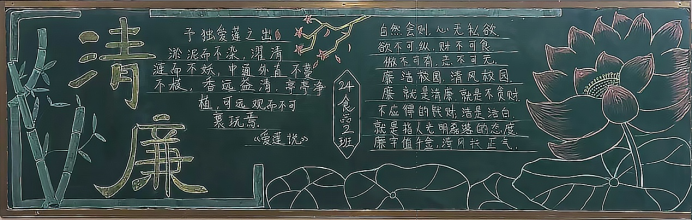 清
廉
予独爱莲之出
淤泥而不染,濯清
涟而不妖,中通外直,不蔓
不枝,香远益清,亭亭净
植,可远观而不可
亵玩焉
《爱莲说》
24食品2班
自然会则,心无私欲
欲不可纵,财不可贪
傲不可有,志不可无
廉洁校园 清风校园
廉 就是清廉 就是不贪财
不应得的钱财,洁是洁白
就是指人光明磊落的态度
廉字值千金,清风扬正气